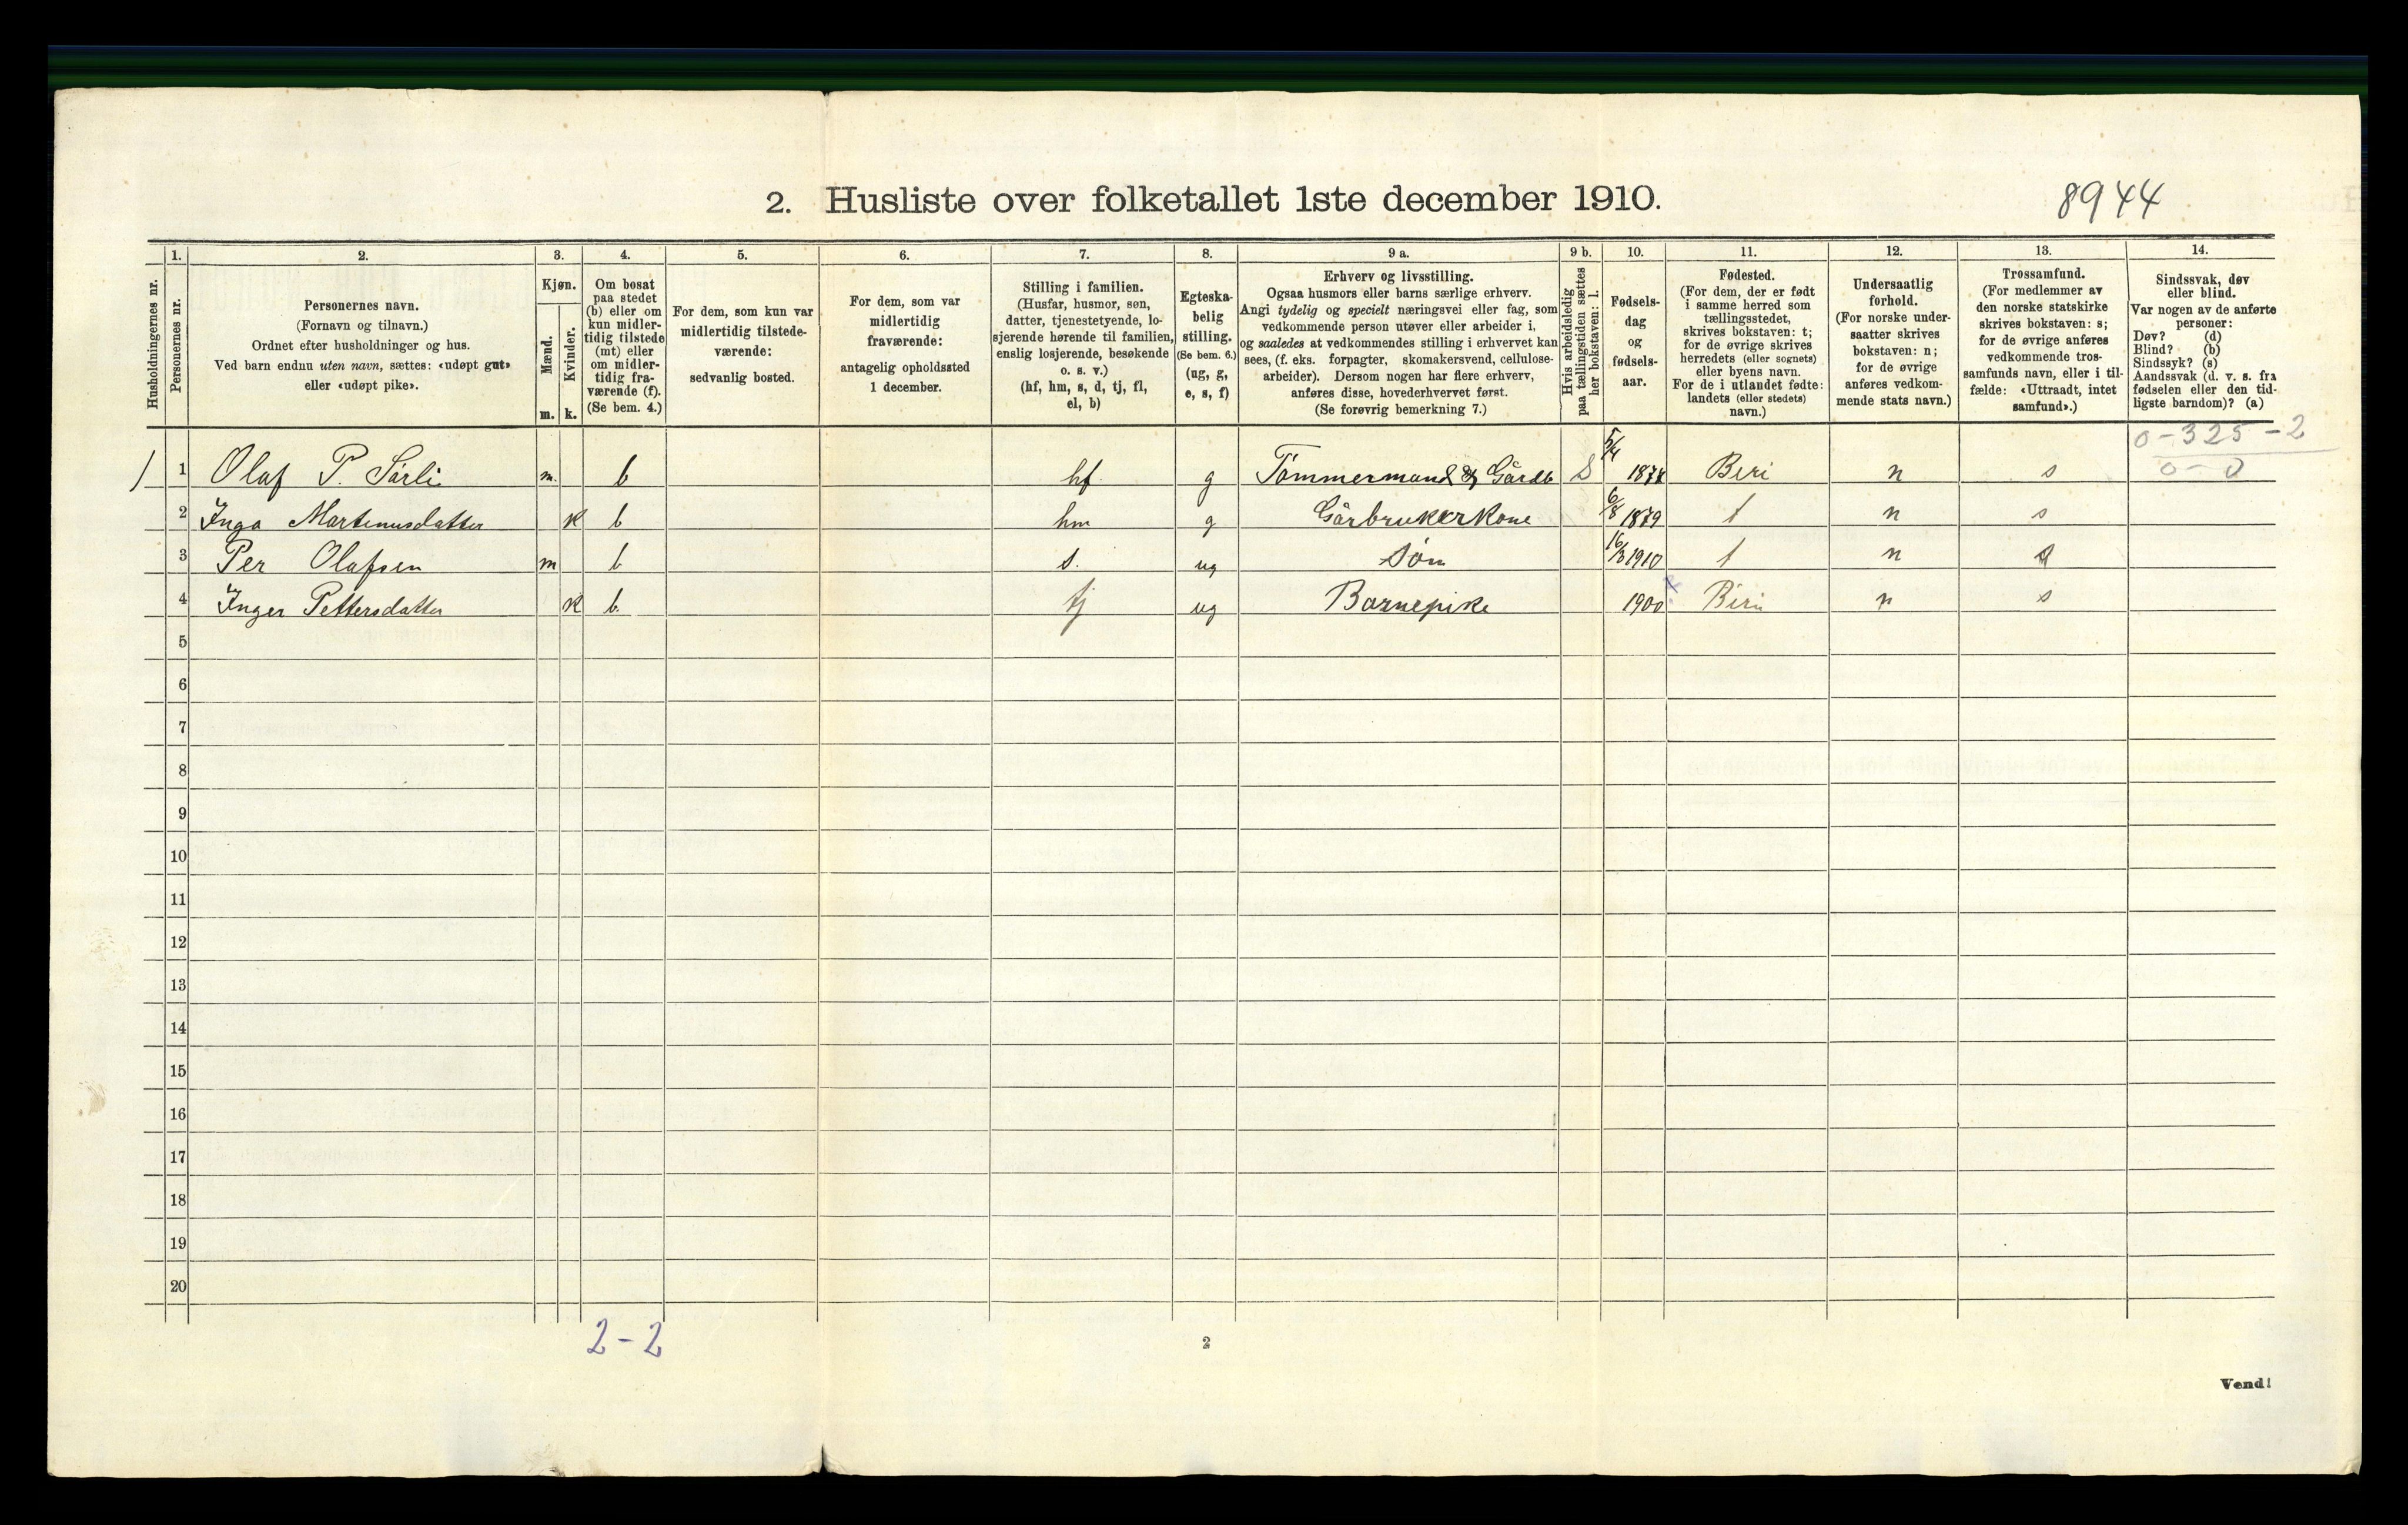 2. Husliste over folketallet 1ste december 1910.
8944
Husholdningernes nr.
1.
Personernes nr.
2.
Personernes navn.
(Fornavn og tilnavn.)
Ordnet efter husholdninger og hus.
Ved barn endnu uten navn, sættes: «udøpt gut»
eller «udøpt pike».
3.
Kjøn.
Mænd.
m.
Kvinder.
k.
4.
Om bosat
paa stedet
(b) eller om
kun midler-
tidig tilstede
(mt) eller
om midler-
tidig fra-
værende (f).
(Se bem. 4.)
5.
For dem, som kun var
midlertidig tilstede-
værende:
sedvanlig bosted.
6.
For dem, som var
midlertidig
fraværende:
antagelig opholdssted
1 december.
7.
Stilling i familien.
(Husfar, husmor, søn,
datter, tjenestetyende, lo-
sjerende hørende til familien,
enslig losjerende, besøkende
o. s. v.)
(hf, hm, s, d, tj, fl,
el, b)
8.
Egteska-
belig
stilling.
(Se bem. 6.)
(ug, g,
e, s, f)
9 a.
Erhverv og livsstilling.
Ogsaa husmors eller barns særlige erhverv.
Angi tydelig og specielt næringsvei eller fag, som
vedkommende person utøver eller arbeider i,
og saaledes at vedkommendes stilling i erhvervet kan
sees, (f. eks. forpagter, skomakersvend, cellulose-
arbeider). Dersom nogen har flere erhverv,
anføres disse, hovederhvervet først.
(Se forøvrig bemerkning 7.)
9 b.
Hvis arbeidsledig
paa tællingstiden sættes
her bokstaven: l.
10.
Fødsels-
dag
og
fødsels-
aar.
11.
Fødested.
(For dem, der er født
i samme herred som
tællingsstedet,
skrives bokstaven: t;
for de øvrige skrives
herredets (eller sognets)
eller byens navn.
For de i utlandet fødte:
landets (eller stedets)
navn.)
12.
Undersaatlig
forhold.
(For norske under-
saatter skrives
bokstaven: n;
for de øvrige
anføres vedkom-
mende stats navn.)
13.
Trossamfund.
(For medlemmer av
den norske statskirke
skrives bokstaven: s;
for de øvrige anføres
vedkommende tros-
samfunds navn, eller i til-
fælde: «Uttraadt, intet
samfund».)
14.
Sindssvak, døv
eller blind.
Var nogen av de anførte
personer:
Døv? (d)
Blind? (b)
Sindssyk? (s)
Aandssvak (d. v. s. fra
fødselen eller den tid-
ligste barndom)? (a)
0-325-2
0-0
1 Olaf P. Sørli m. b hf g Tømmermand & Gårdb 5/4 Beri n s
2 Inga Martinusdatter k b hm g Gårbrukerkone 6/8 1879 t n s
3 Per Olafsen m b s. ug Søn 16/3 1910 t n s
4 Inger Pettersdatter k b. tj ug Barnepike 1900 Biri n s
5
6
7
8
9
10
11
12
13
14
15
16
17
18
19
20
2-2
2
Vend!